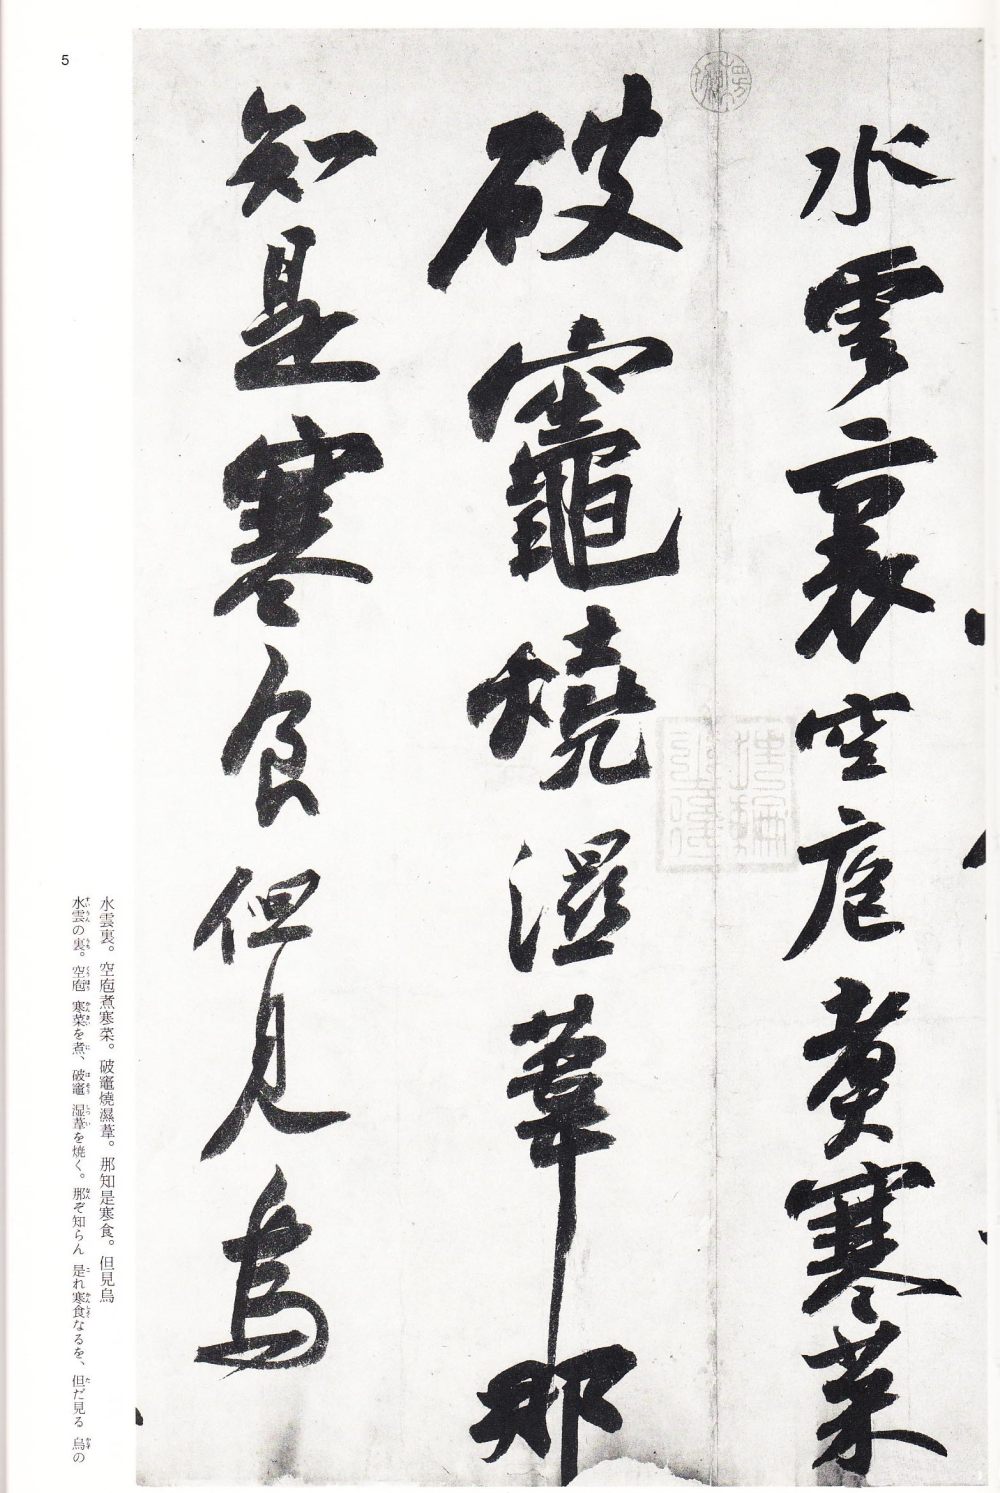 水雲裏空庖煮寒菜
破竈燒濕葦那
知是寒食但見烏
水雲裏。空庖煮寒菜。破竈燒濕葦。那知是寒食。但見烏
水雲の裏。空庖 寒菜を煮、破竈 湿葦を焼く。那ぞ知らん 是れ寒食なるを、但だ見る 烏の
5